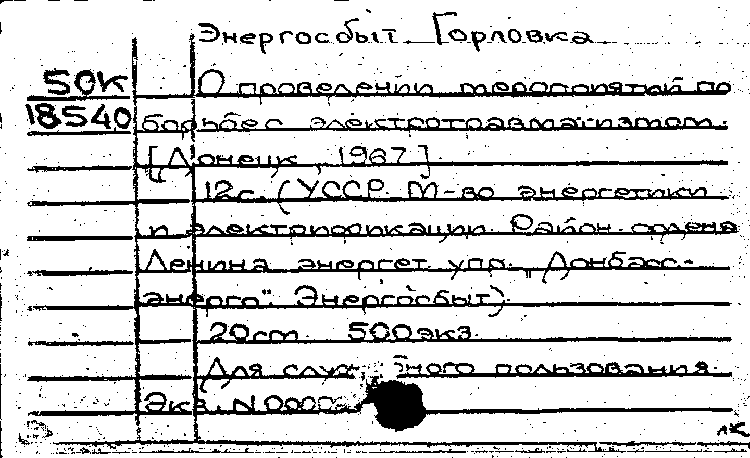 Энергосбыт Горловка
50К О проведении мероприятий по
18540 борьбе с электротравматизмом.
[Донецк, 1967]
12с. (УССР. М-во энергетики
и электрификации. Район. ордена
Ленина энергет. упр. „Донбасс-
энерго". Энергосбыт).
20см. 500экз.
Для пользования.
Экз. N
лк